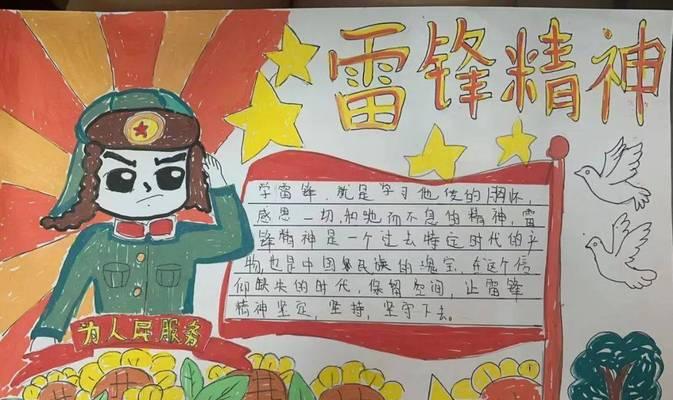 雷锋精神
学雷锋，就是学习他传的胸怀，
感恩一切，和驰而不息的精神，雷
锋精神是一个过去特定时代的产
物，也是中国民族的瑰宝，在这个信
仰缺失的时代，保留空间，让雷锋
精神坚定，坚持，坚守下去。
为人民服务